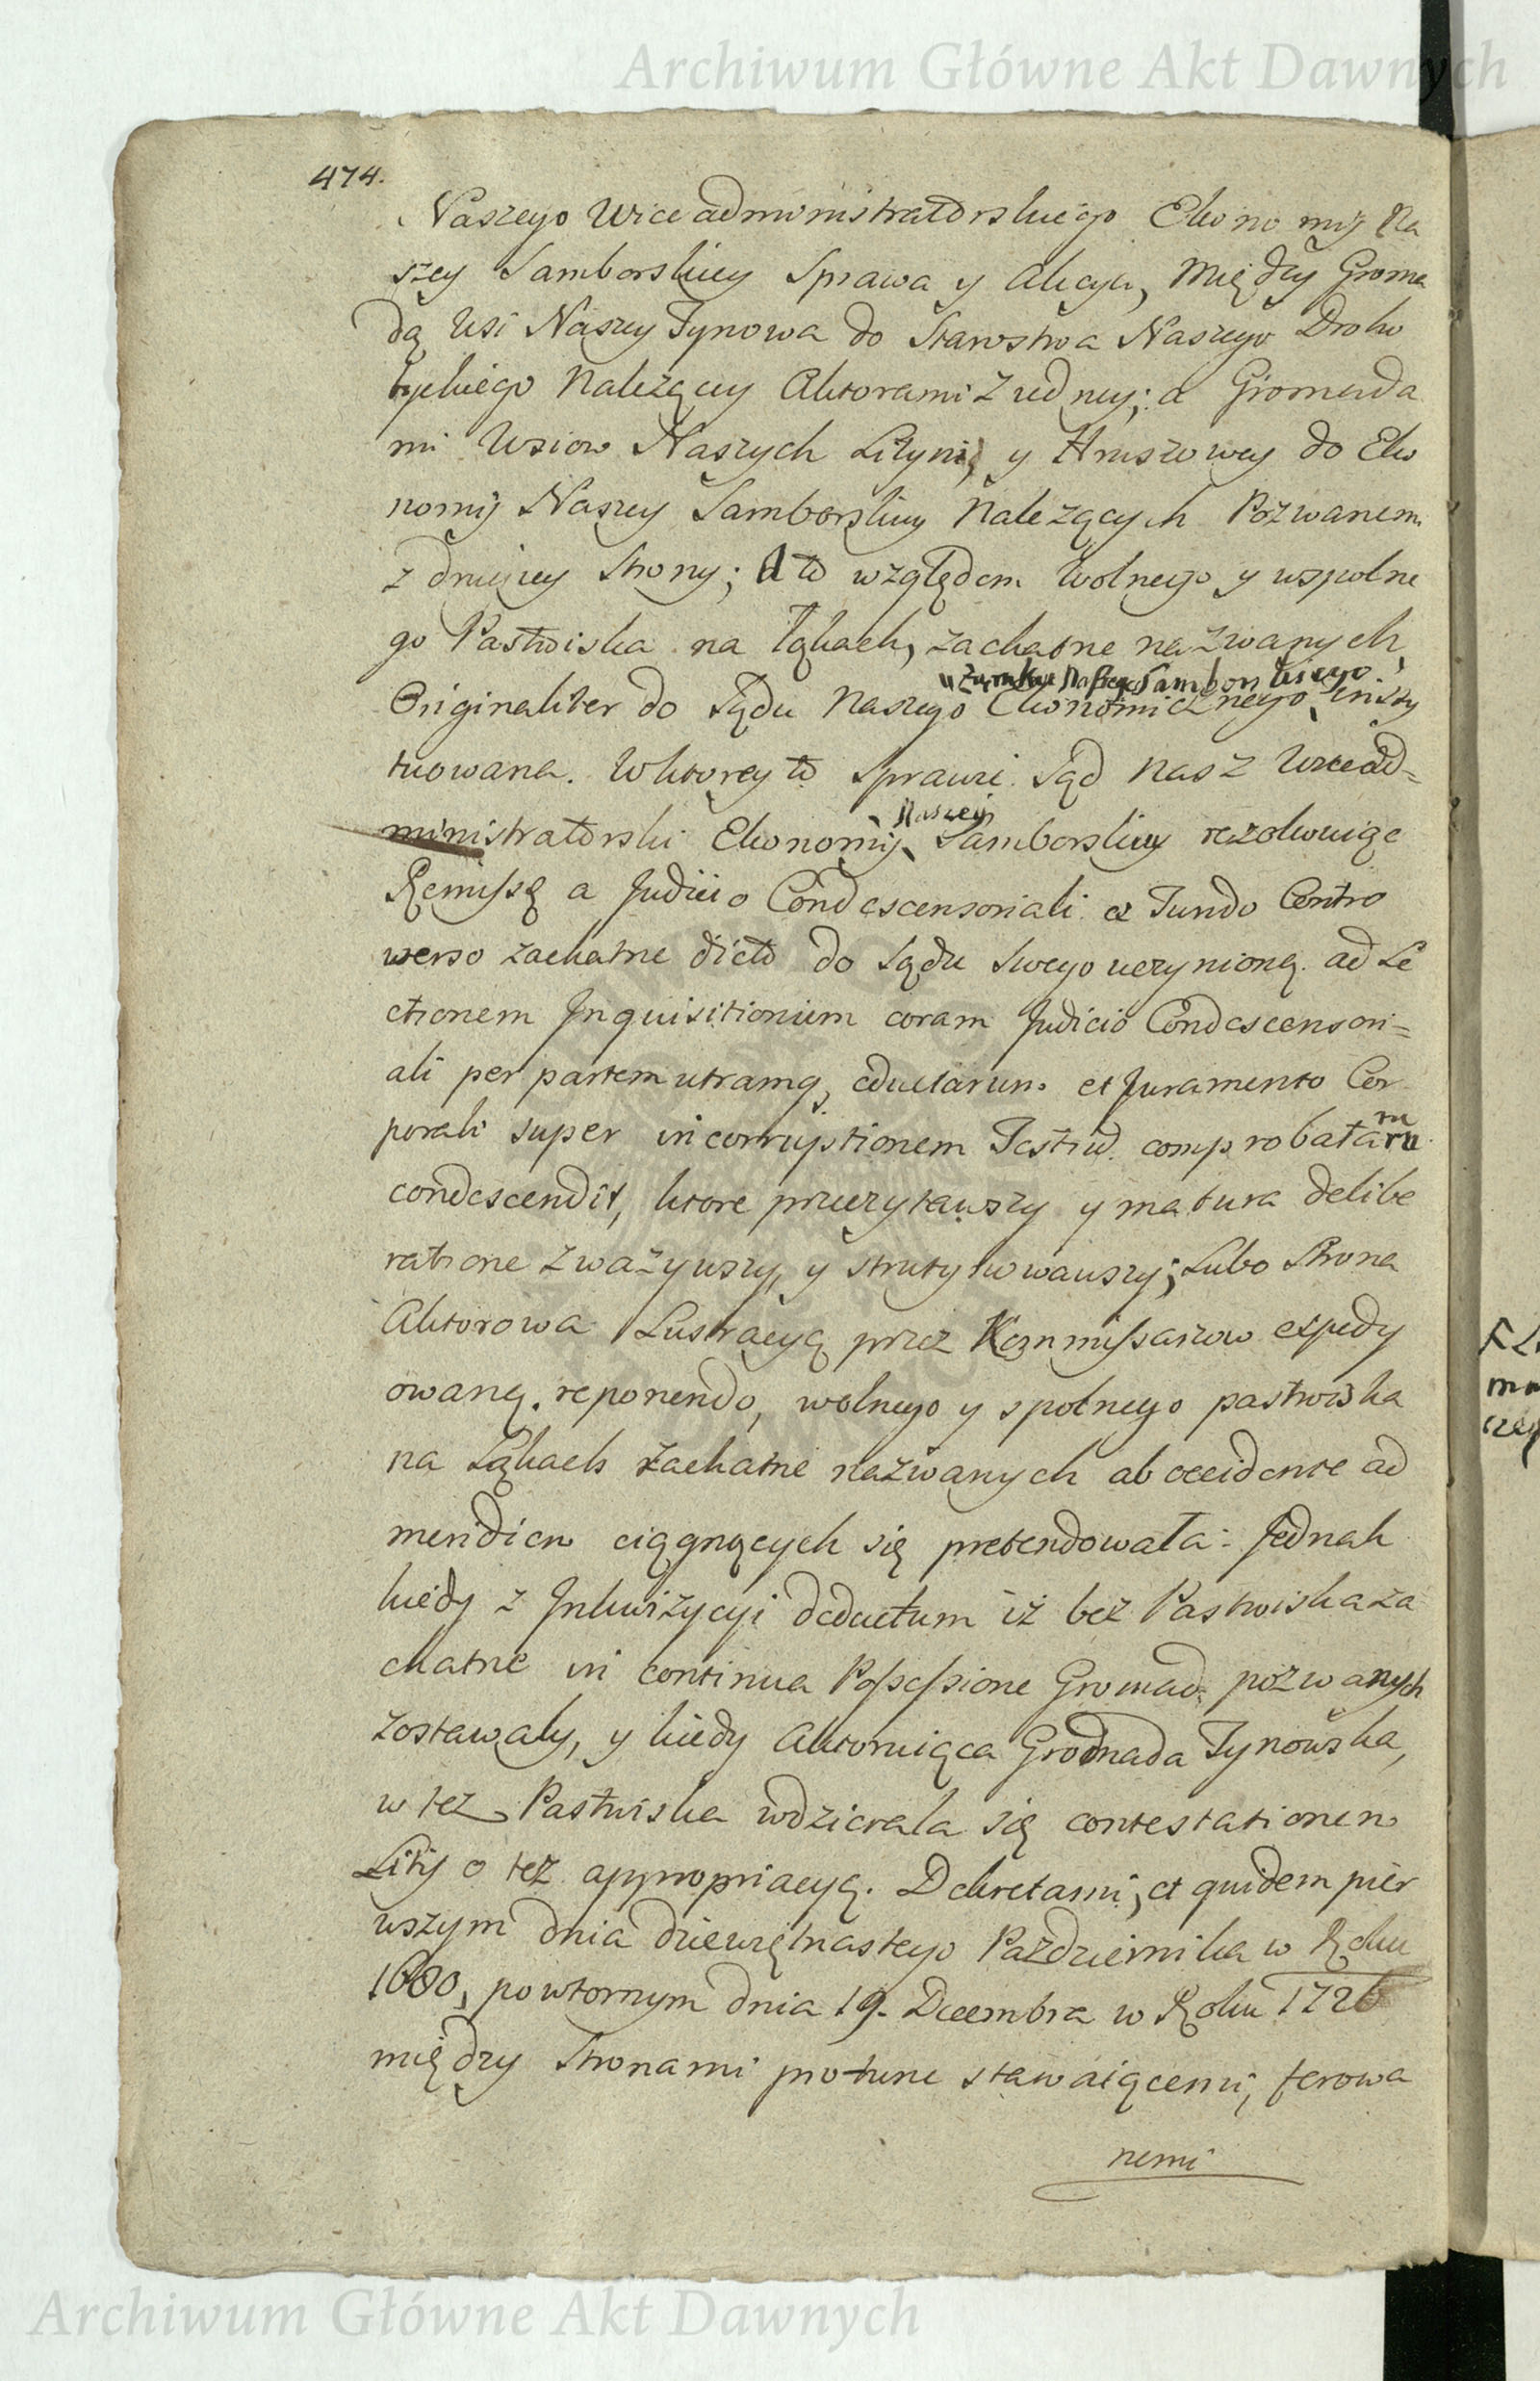 Archiwum Główne Akt Dawnych
474.
Naszego Wice administratorskiego Ekonomij Na
szey Samborskiey Sprawa y Akcya, Między Groma
dą Wsi Naszey Tynowa do Starostwa Naszego Droho
byckiego Należącey Aktorami z iedney; a Gromada
mi Wsiow Naszych Lityni, y Hruszowey do Eko
nomij Naszey Samborskiey Należących Pozwanemi
z drugiey Strony; A to względem Wolnego y wspolne
go Pastwiska na Łąkach, zachatne nazwanych,
Zamku Naszego Samborskiego
Originaliter do Sądu Naszego Ekonomicznego insty
tuowana. W ktorey to Sprawie Sąd Nasz Wicead=
Naszey
ministratorski Ekonomij Samborskiey rezolwuiąc
Remissę a Judicio Condescensoriali ex Fundo Contro
werso zachatne dicto do Sądu Swego uczynioną ad Le
ctionem Inquisitionum coram Judicio Condescensori=
ali per partem utramq, eductarum et Juramento Cor
porali super incorruptionem Testiu. comprobataru
m
condescendit, ktore przeczytawszy y matura delibe
ratione zważywszy, y strutynowawszy; Lubo Strona
Aktorowa Lustracyą przez Kommissarzow expedy
owaną. reponendo, wolnego y spolnego pastwiska
na Łąkach zachatne nazwanych ab occidente ad
meridiem ciągnących się pretendowała: Jednak
kiedy z Inkwizycyi deductum iż bez Pastwiska za
chatne in continua Possessione Gromad. pozwanych
zostawały, y kiedy Aktoruiąca Gromada Tynowska,
w też Pastwiska wdzierala się contestationem
Litis o też appropriacyą. Dekretami, et quidem pier
wszym dnia dziewiętnastego Pazdziernika w Roku
1680, powtornym dnia 19. Decembra w Roku 1726
między Stronami protunc stawaiącemi, ferowa
nemi
Archiwum Główne Akt Dawnych